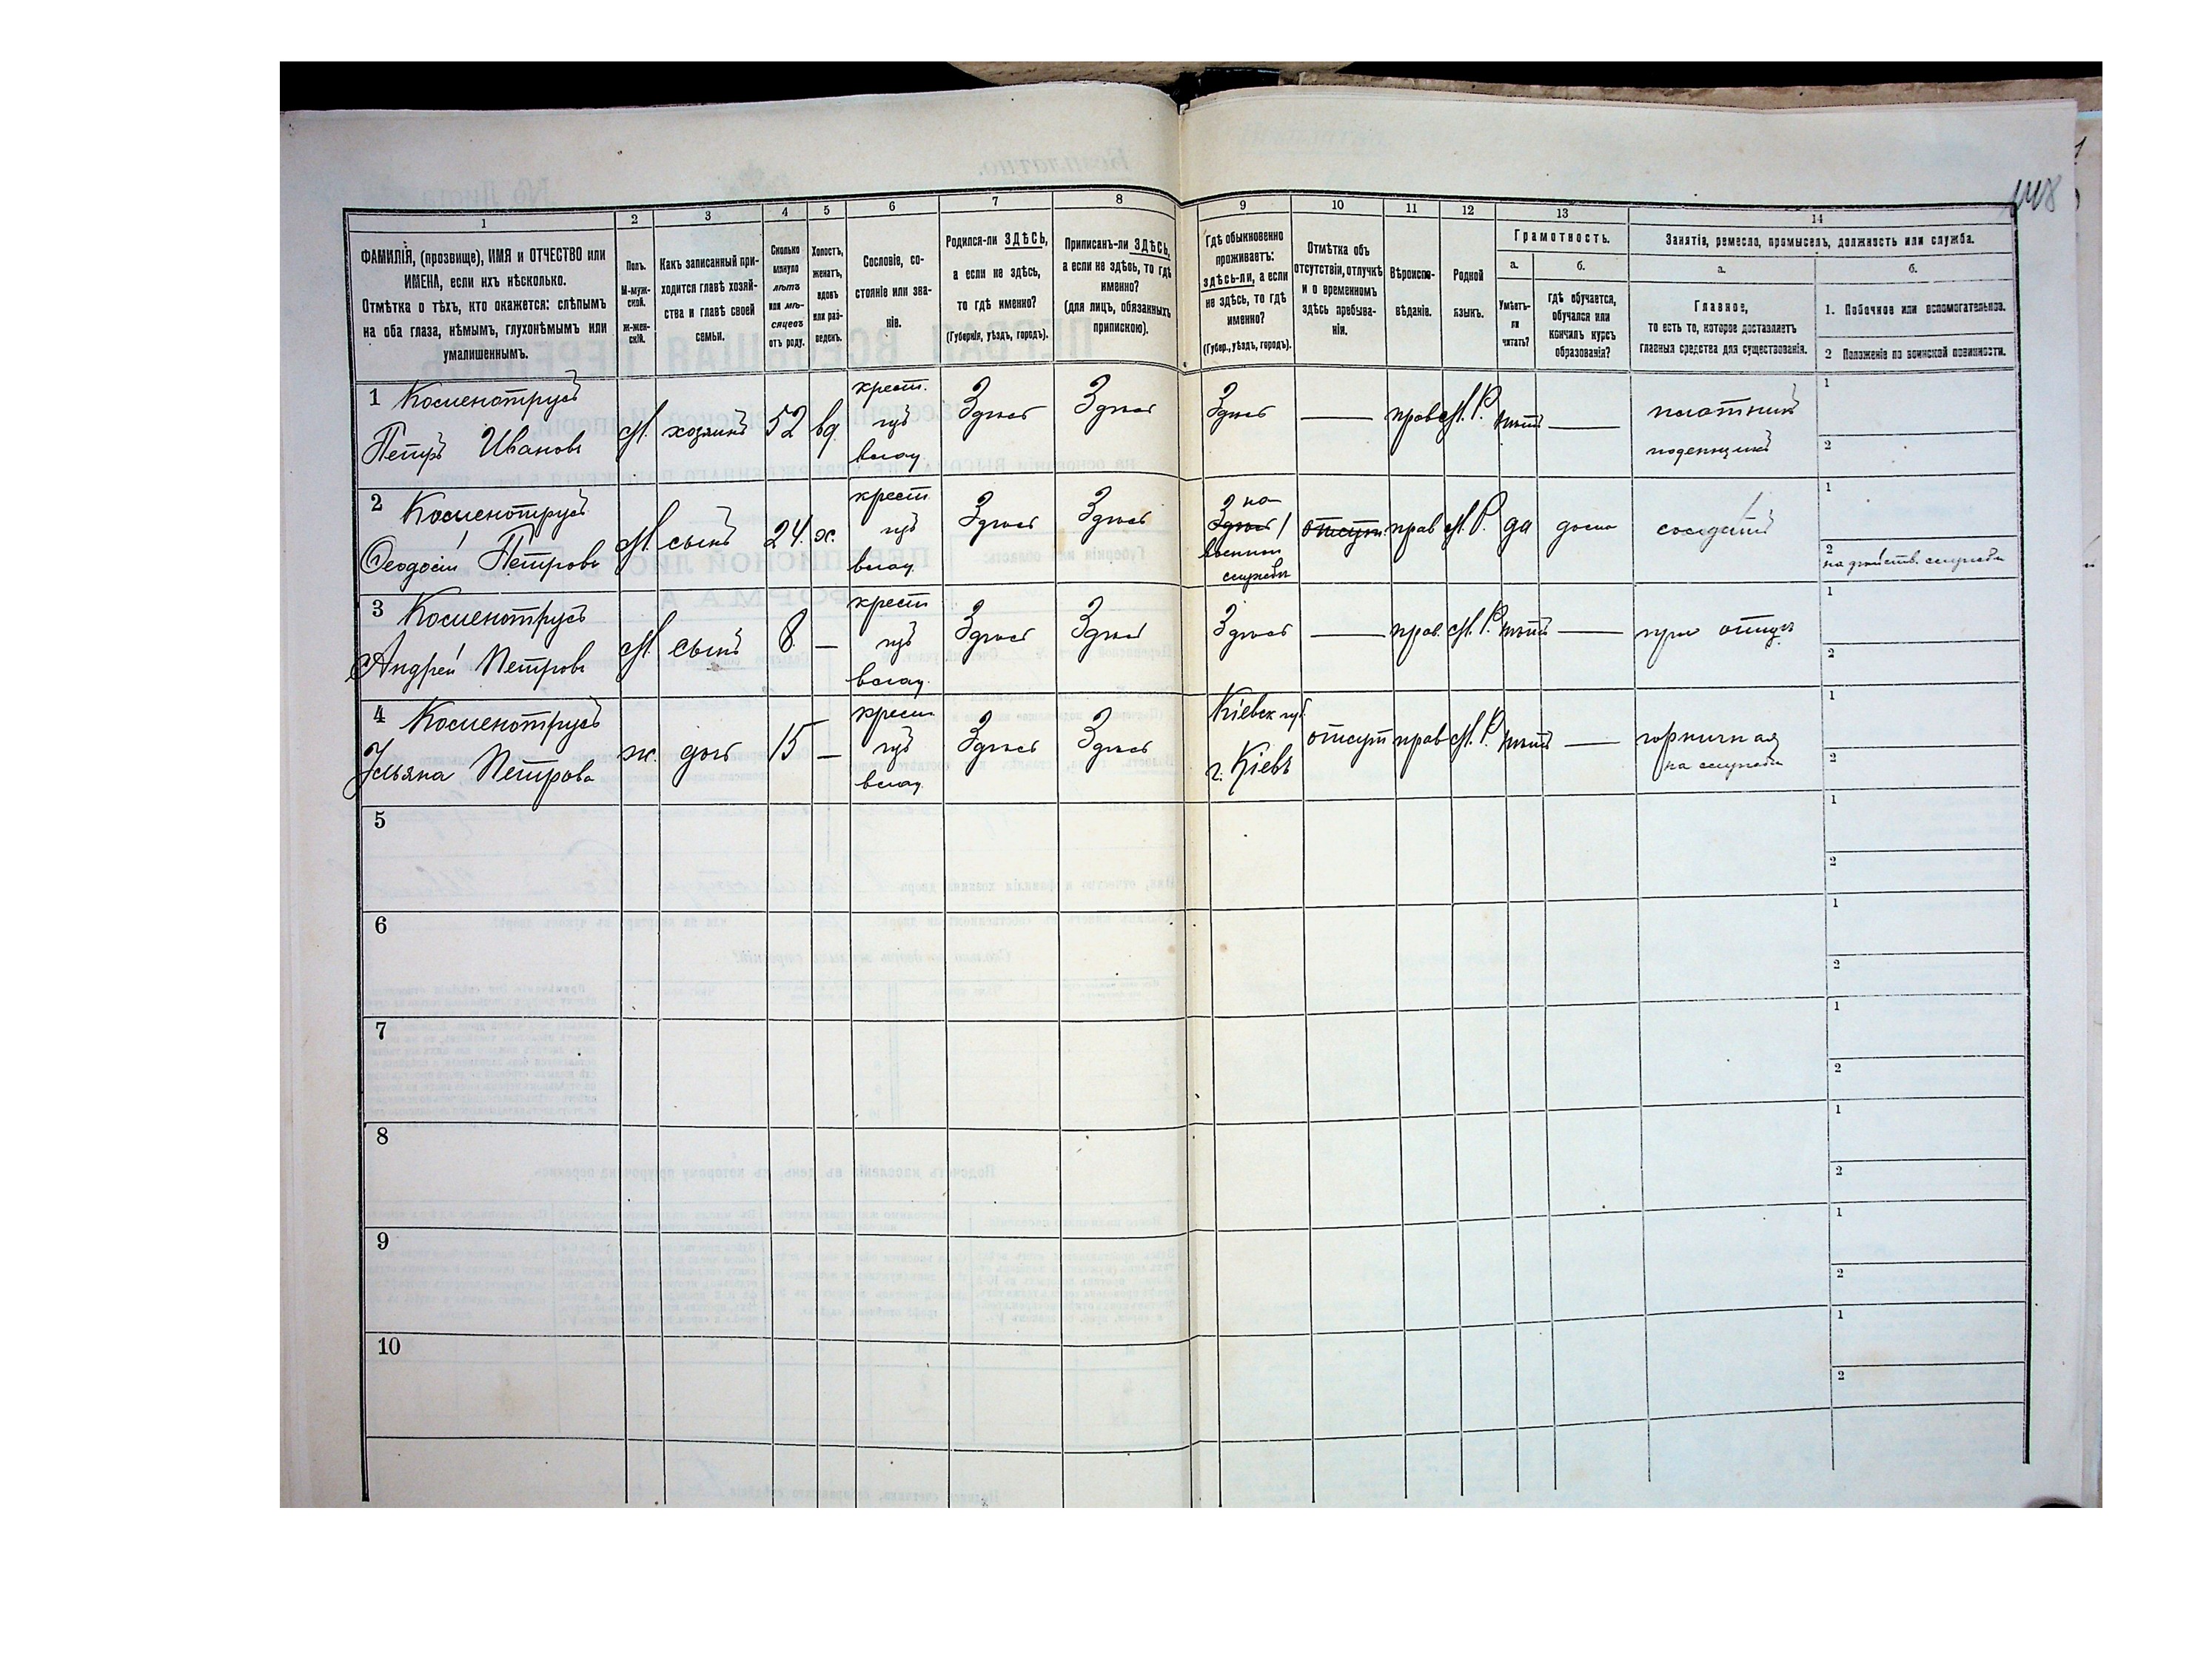 148
1 2 3 4 5 6 7 8 9 10 11 12 13 14
ФАМИЛІЯ, (прозвище), ИМЯ и ОТЧЕСТВО или
ИМЕНА, если ихъ нѣсколько.
Отмѣтка о тѣхъ, кто окажется: слѣпымъ
на оба глаза, нѣмымъ, глухонѣмымъ или
умалишеннымъ.
Полъ.
М-муж-
ской.
ж-жен-
скій.
Какъ записанный при-
ходится главѣ хозяй-
ства и главѣ своей
семьи.
Сколько
минуло
лѣтъ
или мѣ-
сяцевъ
отъ роду.
Холостъ,
женатъ,
вдовъ
или раз-
веденъ.
Сословіе, со-
стояніе или зва-
ніе.
Родился-ли ЗДѢСЬ,
а если не здѣсь,
то гдѣ именно?
(Губернія, уѣздъ, городъ).
Приписанъ-ли ЗДѢСЬ,
а если не здѣсь, то гдѣ
именно?
(для лицъ, обязанныхъ
припискою).
Гдѣ обыкновенно
проживаетъ:
здѣсь-ли, а если
не здѣсь, то гдѣ
именно?
(Губер., уѣздъ, городъ).
Отмѣтка объ
отсутствіи, отлучкѣ
и о временномъ
здѣсь пребыва-
ніи.
Вѣроиспо-
вѣданіе.
Родной
языкъ.
Грамотность.
а.
Умѣетъ-
ли
читать?
б.
гдѣ обучается,
обучался или
кончилъ курсъ
образованія?
Занятія, ремесло, промыселъ, должность или служба.
а.
Главное,
то есть то, которое доставляетъ
главныя средства для существованія.
б.
1. Побочное или вспомогательное.
2 Положеніе по воинской повинности.
1 Косменотрусъ
Петръ Ивановъ
М. хозяинъ 52 вд.
крест.
изъ
влад.
Здѣсь Здѣсь Здѣсь — прав М. Р. нѣтъ —
плотникъ
поденщикъ
1
2
2 Косменотрусъ
Ѳеодосій Петровъ
М. сынъ 24. х.
крест
изъ
влад.
Здѣсь Здѣсь
на
Здѣсь
военной
службѣ
отсут. прав М. Р. да дома солдатъ
1
2
на дѣйств. службѣ
3 Косменотрусъ
Андрей Петровъ
М. сынъ 8. —
крест
изъ
влад.
Здѣсь Здѣсь Здѣсь — прав. М. Р. нѣтъ — при отцѣ
1
2
4 Косменотрусъ
Ульяна Петрова
ж. дочь 15 —
крест
изъ
влад.
Здѣсь Здѣсь
Кіевск губ.
г. Кіевъ
отсут прав М. Р. нѣтъ —
горничная
на службѣ
1
2
5
1
2
6
1
2
7
1
2
8
1
2
9
1
2
10
1
2